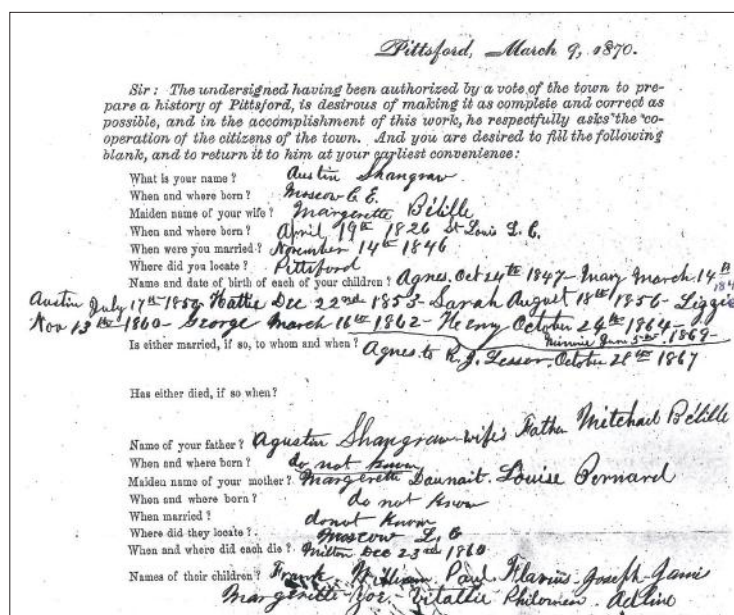 Pittsford, March 9, 1870.
Sir: The undersigned having been authorized by a vote of the town to pre-
pare a history of Pittsford, is desirous of making it as complete and correct as
possible, and in the accomplishment of this work, he respectfully asks the co-
operation of the citizens of the town. And you are desired to fill the following
blank, and to return it to him at your earliest convenience:
What is your name? Austin Shangraw
When and where born? Moscow C. E.
Maiden name of your wife? Margerette Bélille
When and where born? April 19th 1826 St Louis L. C.
When were you married? November 14th 1846
Where did you locate? Pittsford
Name and date of birth of each of your children? Agnes, Oct 24th 1847 - Mary March 14th
Austin July 17th 1850 Hattie Dec 22nd 1853 - Sarah August 18th 1856 - Lizzie
Nov 13th 1860 - George March 16th 1862 - Henry October 24th 1864 -
Minnie June 1869 -
Is either married, if so, to whom and when? Agnes to R. J. Lessor October 28th 1867
Has either died, if so when?
Name of your father? Agustin Shangraw - wife's Father Mitchail Bélille
When and where born? do not know
Maiden name of your mother? Margerette Daunait. Louise Bernard
When and where born? do not know
When married? do not know
Where did they locate? Moscow L. C
When and where did each die? Milton Dec 23rd 1860
Names of their children? Frank William Paul Flavius Joseph Jamis
Margerette Zoe Vitallie Philomen Adline